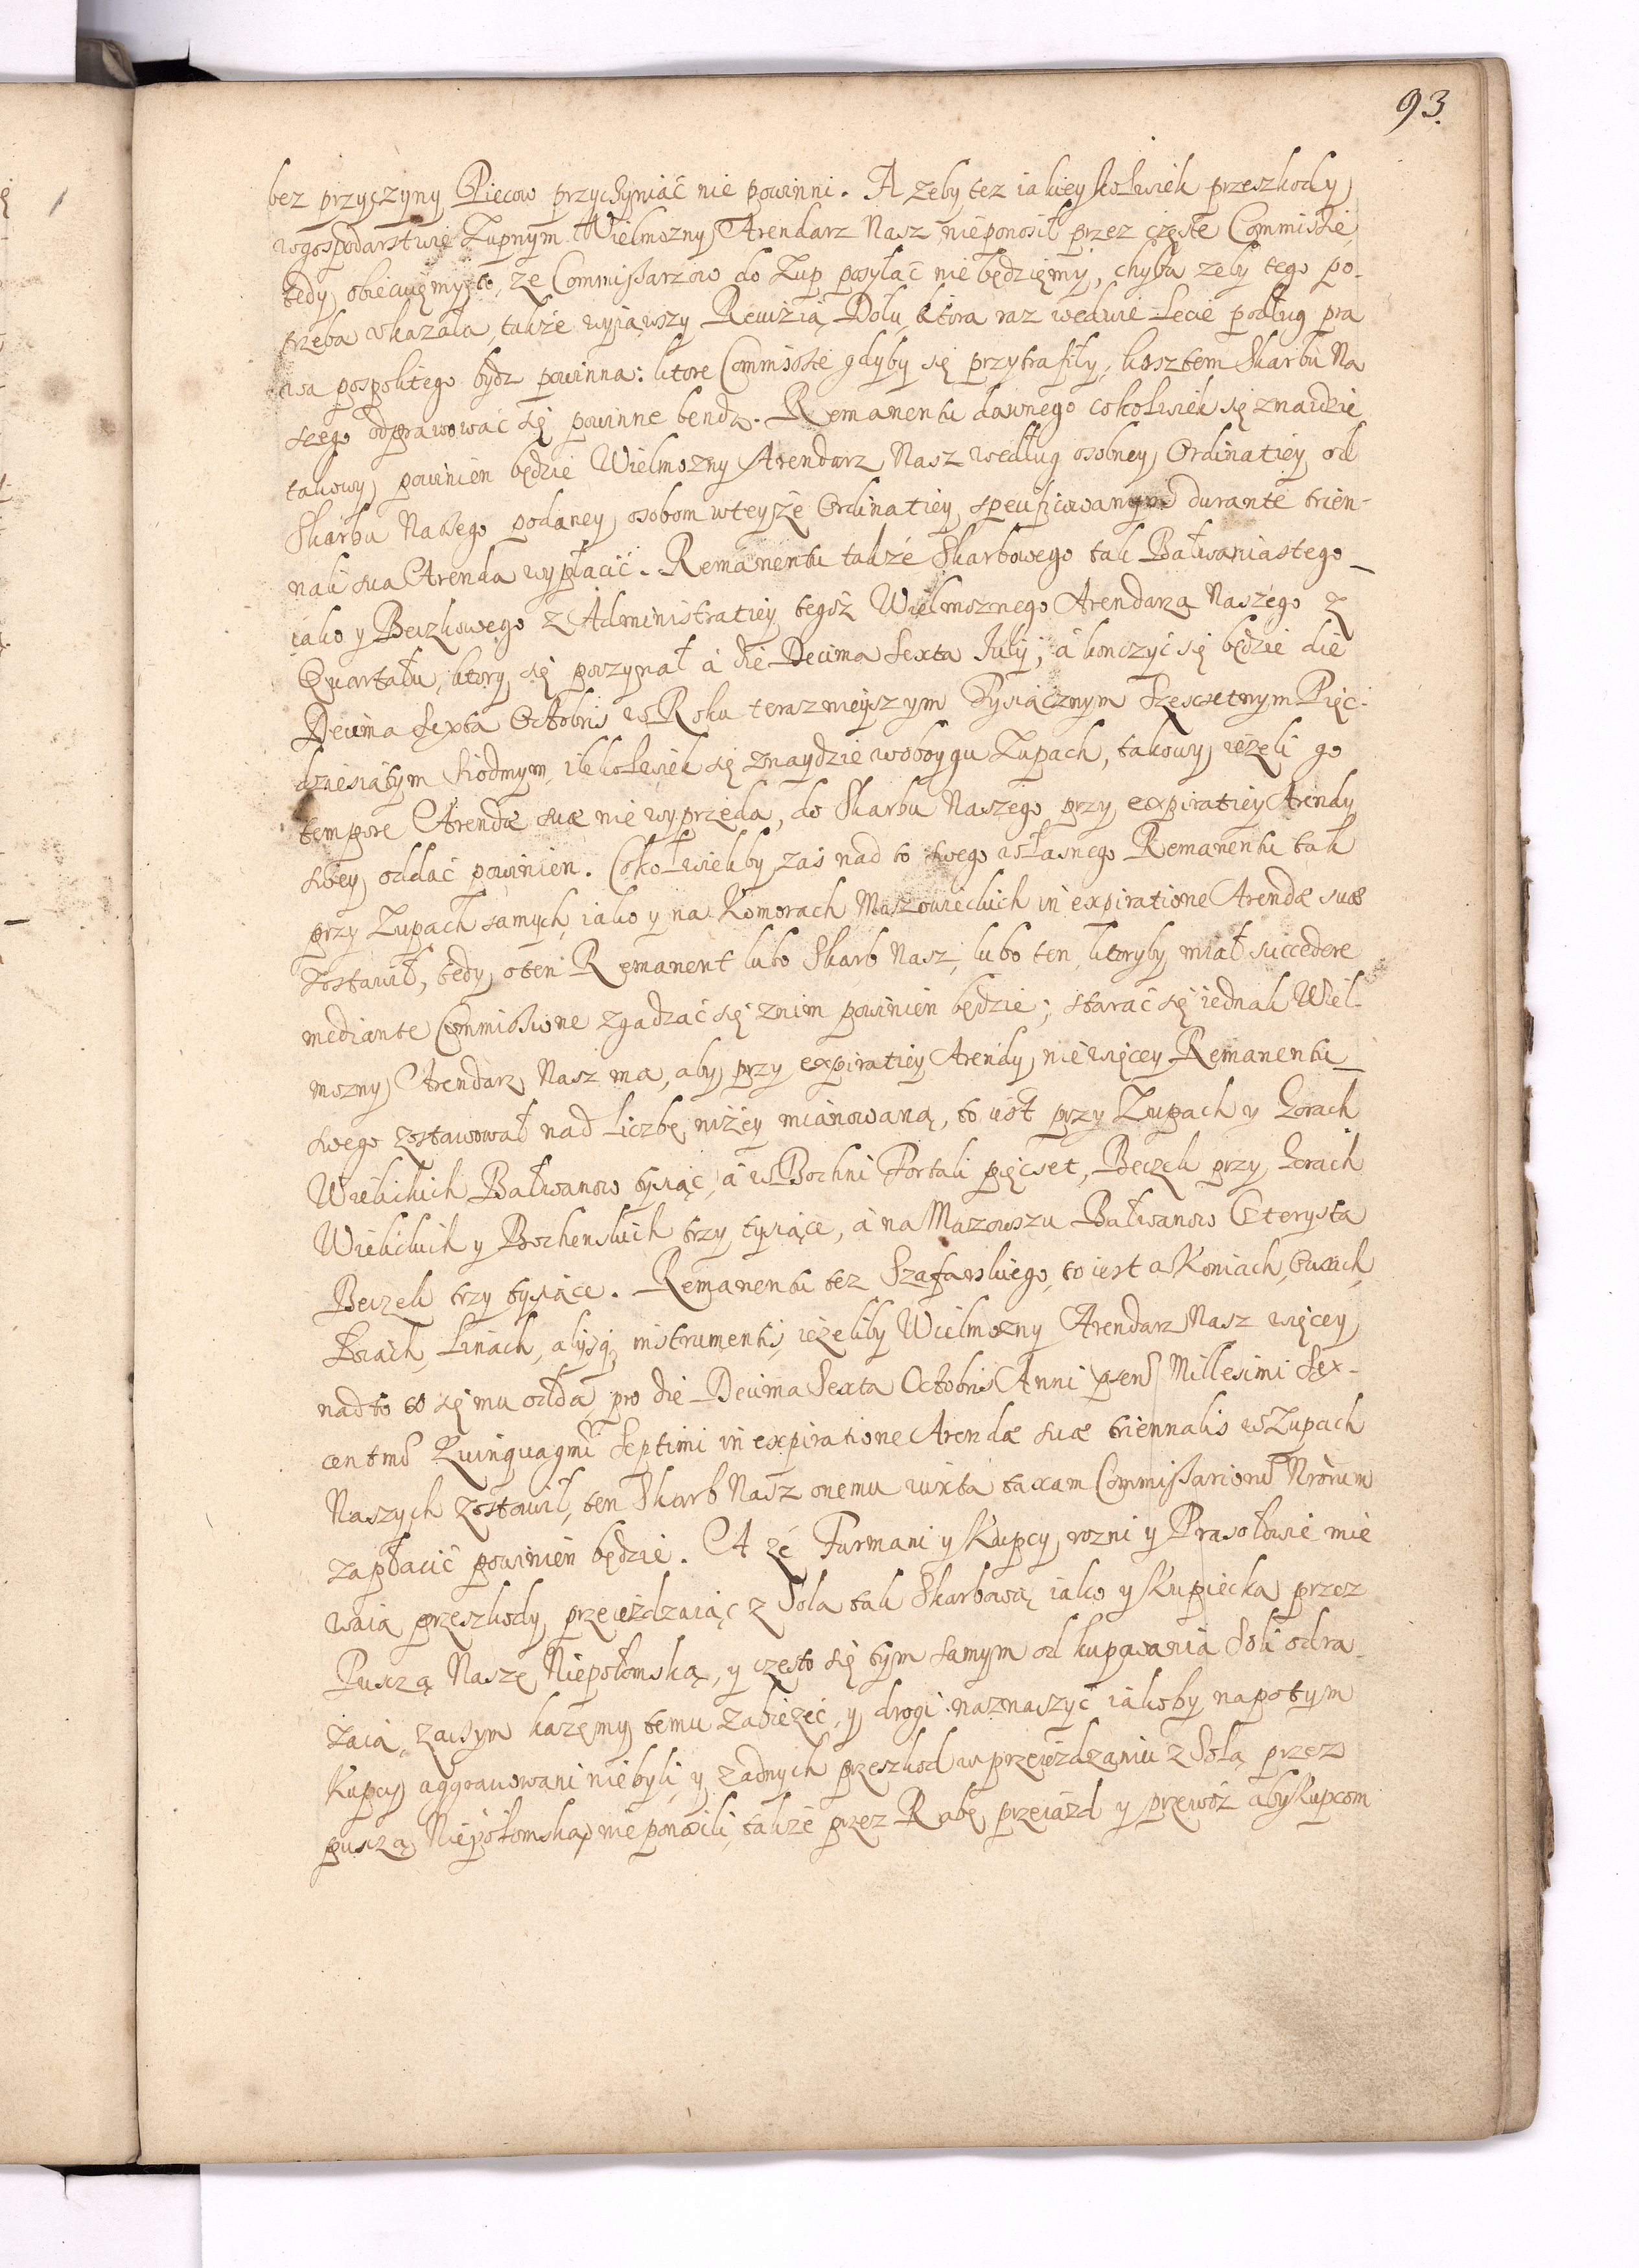 93.
bez przyczyny Piecow przyczyniać nie powinni. A zeby tez iakieykolwiek przeszkody
wgospodarstwie Zupnym Wielmozny Arendarz Nasz nieponosił przez częste Commissie,
tedy obiecuięmy to, ze Commissarzow do Zup posyłać nie będzięmy, chyba zeby tego po-
trzeba vkazała, także wyiąwszy Rewizią Dołu, która raz wedwie Lecie podług pra
wa pospolitego bydz powinna: ktore Commissie gdyby się przytrafiły, kosztem Skarbu Na
szego odprawować się powinne bendą. Remanentu dawnego cokolwiek się znaidzie
takowy powinien będzie Wielmozny Arendarz Nasz według osobney Ordinatiey od
Skarbu Naszego podaney osobom wteyże Ordinatiey specifikowanym durante trien-
nali sua Arenda wypłacić. Remanentu także Skarbowego tak Bałwaniastego
iako y Beczkowego z Administratiey tegoż Wielmoznego Arendarza Naszego z
Quartału, ktory się poczynał a die Decima Sexta July, a konczyć się będzie die
Decima Sexta Octobris w Roku teraznieyszym Tysiącznym Szescsetnym Pięc-
dziesiątym Siodmym, ilekolwiek się znaydzie woboygu Zupach, takowy iezeli go
tempore Arendæ suæ nie wyprzeda, do Skarbu Naszego przy expiratiey Arendy
swey oddać powinien. Cokolwiekby zaś nad to swego własnego Remanentu tak
przy Zupach samych, iako y na Komorach Mazowieckich in expiratione Arendæ suæ
zostawił, tedy oten Remanent lubo Skarb Nasz, lubo ten, ktoryby miał succedere
mediante Commissione zgadzać się znim powinien będzie; starać się iednak Wiel-
mozny Arendarz Nasz ma, aby przy expiratiey Arendy niewięcey Remanentu
swego zostawował nad liczbę niżey mianowaną, to iest przy Zupach y Zorach
Wielickich Bałwanow tysiąc, a w Bochni Fortali pięcset, Beczek przy Zorach
Wielickich y Bochenskich trzy tysiące, a na Mazowszu Bałwanow Czterysta
Beczek trzy tysiące. Remanentu tez Szafarskiego, to iest w Koniach,
Linach, alysq, instrumentis, iezeliby Wielmozny Arendarz Nasz więcey
nad to co się mu odda pro die Decima Sexta Octobris Anni psens Millesimi Sex-
centmi Quinquagmi Septimi in expiratione Arendæ suæ triennalis w Zupach
Naszych zostawił, ten Skarb Nasz onemu iuxta taxam Commissariorū Nrorum
zapłacić powinien będzie. A że Furmani y Kupcy rozni y Prasołowie mie
waia przeszkody przeieżdzaiąc z Solą tak Skarbową iako y Kupiecką przez
Puszczą Naszę Niepołomską, y często się tym samym od kupowania Soli odra-
zaią, zaczym każęmy temu zabieżeć, y drogi naznaczyć iakoby napotym
Kupcy aggravowani niebyli y żadnych przeszkod w przeieżdzaniu z Solą przez
puszczą Niepołomską nie ponosili, także przez Rabę przeiazd y przewoz aby Kupcom